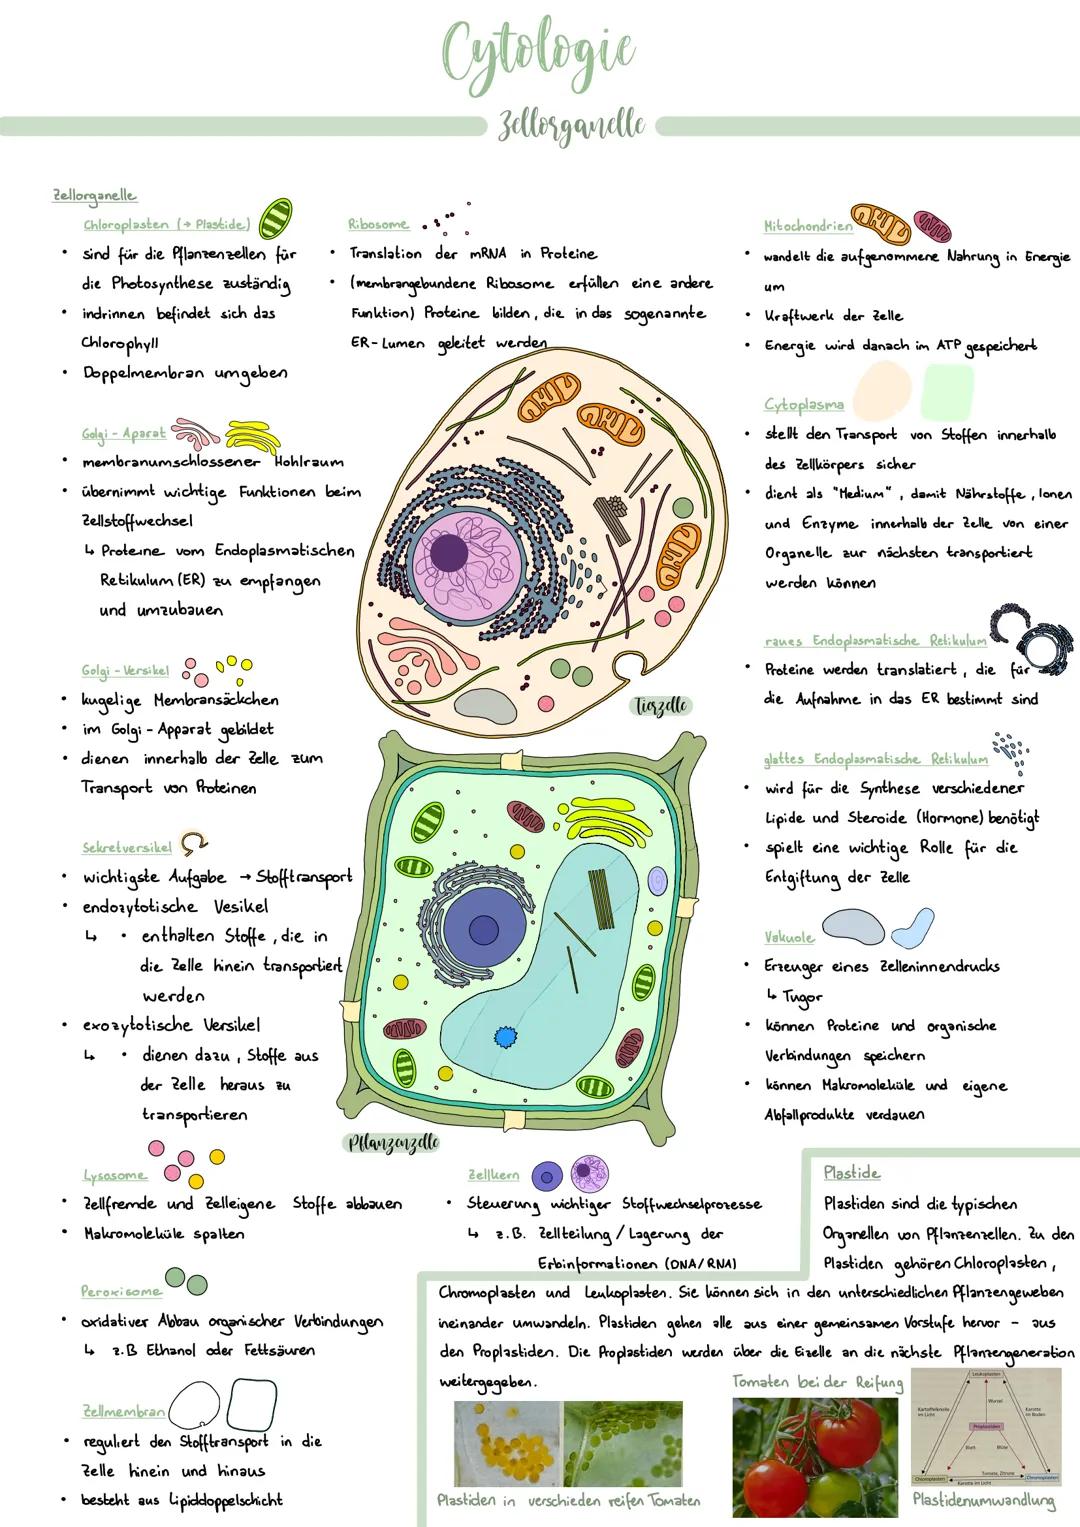 Cytologie
Zellorganelle
Zellorganelle
Chloroplasten (→ Plastide)
• sind für die Pflanzenzellen für
die Photosynthese zuständig
• indrinnen befindet sich das
Chlorophyll
• Doppelmembran umgeben
Golgi - Aparat
• membranumschlossener Hohlraum
• übernimmt wichtige Funktionen beim
Zellstoffwechsel
↳ Proteine vom Endoplasmatischen
Retikulum (ER) zu empfangen
und umzubauen
Golgi - Versikel
• kugelige Membransäckchen
• im Golgi - Apparat gebildet
• dienen innerhalb der Zelle zum
Transport von Proteinen
Sekretversikel
• wichtigste Aufgabe → Stofftransport
• endozytotische Vesikel
↳ • enthalten Stoffe, die in
die Zelle hinein transportiert
werden
• exozytotische Versikel
↳ • dienen dazu, Stoffe aus
der Zelle heraus zu
transportieren
Lysosome
• Zellfremde und Zelleigene Stoffe abbauen
• Makromoleküle spalten
Peroxisome
• oxidativer Abbau organischer Verbindungen
↳ z.B Ethanol oder Fettsäuren
Zellmembran
• reguliert den Stofftransport in die
Zelle hinein und hinaus
• besteht aus Lipiddoppelschicht
Ribosome
• Translation der mRNA in Proteine
• (membrangebundene Ribosome erfüllen eine andere
Funktion) Proteine bilden, die in das sogenannte
ER-Lumen geleitet werden
Tierzelle
Pflanzenzelle
Zellkern
• Steuerung wichtiger Stoffwechselprozesse
↳ z.B. Zellteilung / Lagerung der
Erbinformationen (DNA/RNA)
Mitochondrien
• wandelt die aufgenommene Nahrung in Energie
um
• Kraftwerk der Zelle
• Energie wird danach im ATP gespeichert
Cytoplasma
• stellt den Transport von Stoffen innerhalb
des Zellkörpers sicher
• dient als "Medium", damit Nährstoffe, Ionen
und Enzyme innerhalb der Zelle von einer
Organelle zur nächsten transportiert
werden können
raues Endoplasmatische Retikulum
• Proteine werden translatiert, die für
die Aufnahme in das ER bestimmt sind
glattes Endoplasmatische Retikulum
• wird für die Synthese verschiedener
Lipide und Steroide (Hormone) benötigt
• spielt eine wichtige Rolle für die
Entgiftung der Zelle
Vakuole
• Erzeuger eines Zelleninnendrucks
↳ Tugor
• können Proteine und organische
Verbindungen speichern
• können Makromoleküle und eigene
Abfallprodukte verdauen
Plastide
Plastiden sind die typischen
Organellen von Pflanzenzellen. Zu den
Plastiden gehören Chloroplasten,
Chromoplasten und Leukoplasten. Sie können sich in den unterschiedlichen Pflanzengeweben
ineinander umwandeln. Plastiden gehen alle aus einer gemeinsamen Vorstufe hervor - aus
den Proplastiden. Die Proplastiden werden über die Eizelle an die nächste Pflanzengeneration
weitergegeben.
Plastiden in verschieden reifen Tomaten
Tomaten bei der Reifung
Leukoplasten
Kartoffelknolle
im Licht
Wurzel
Karotte
im Boden
Proplastiden
Blatt
Blüte
Tomate, Zitrone
Chloroplasten
Chromoplasten
Karotte im Licht
Plastidenumwandlung